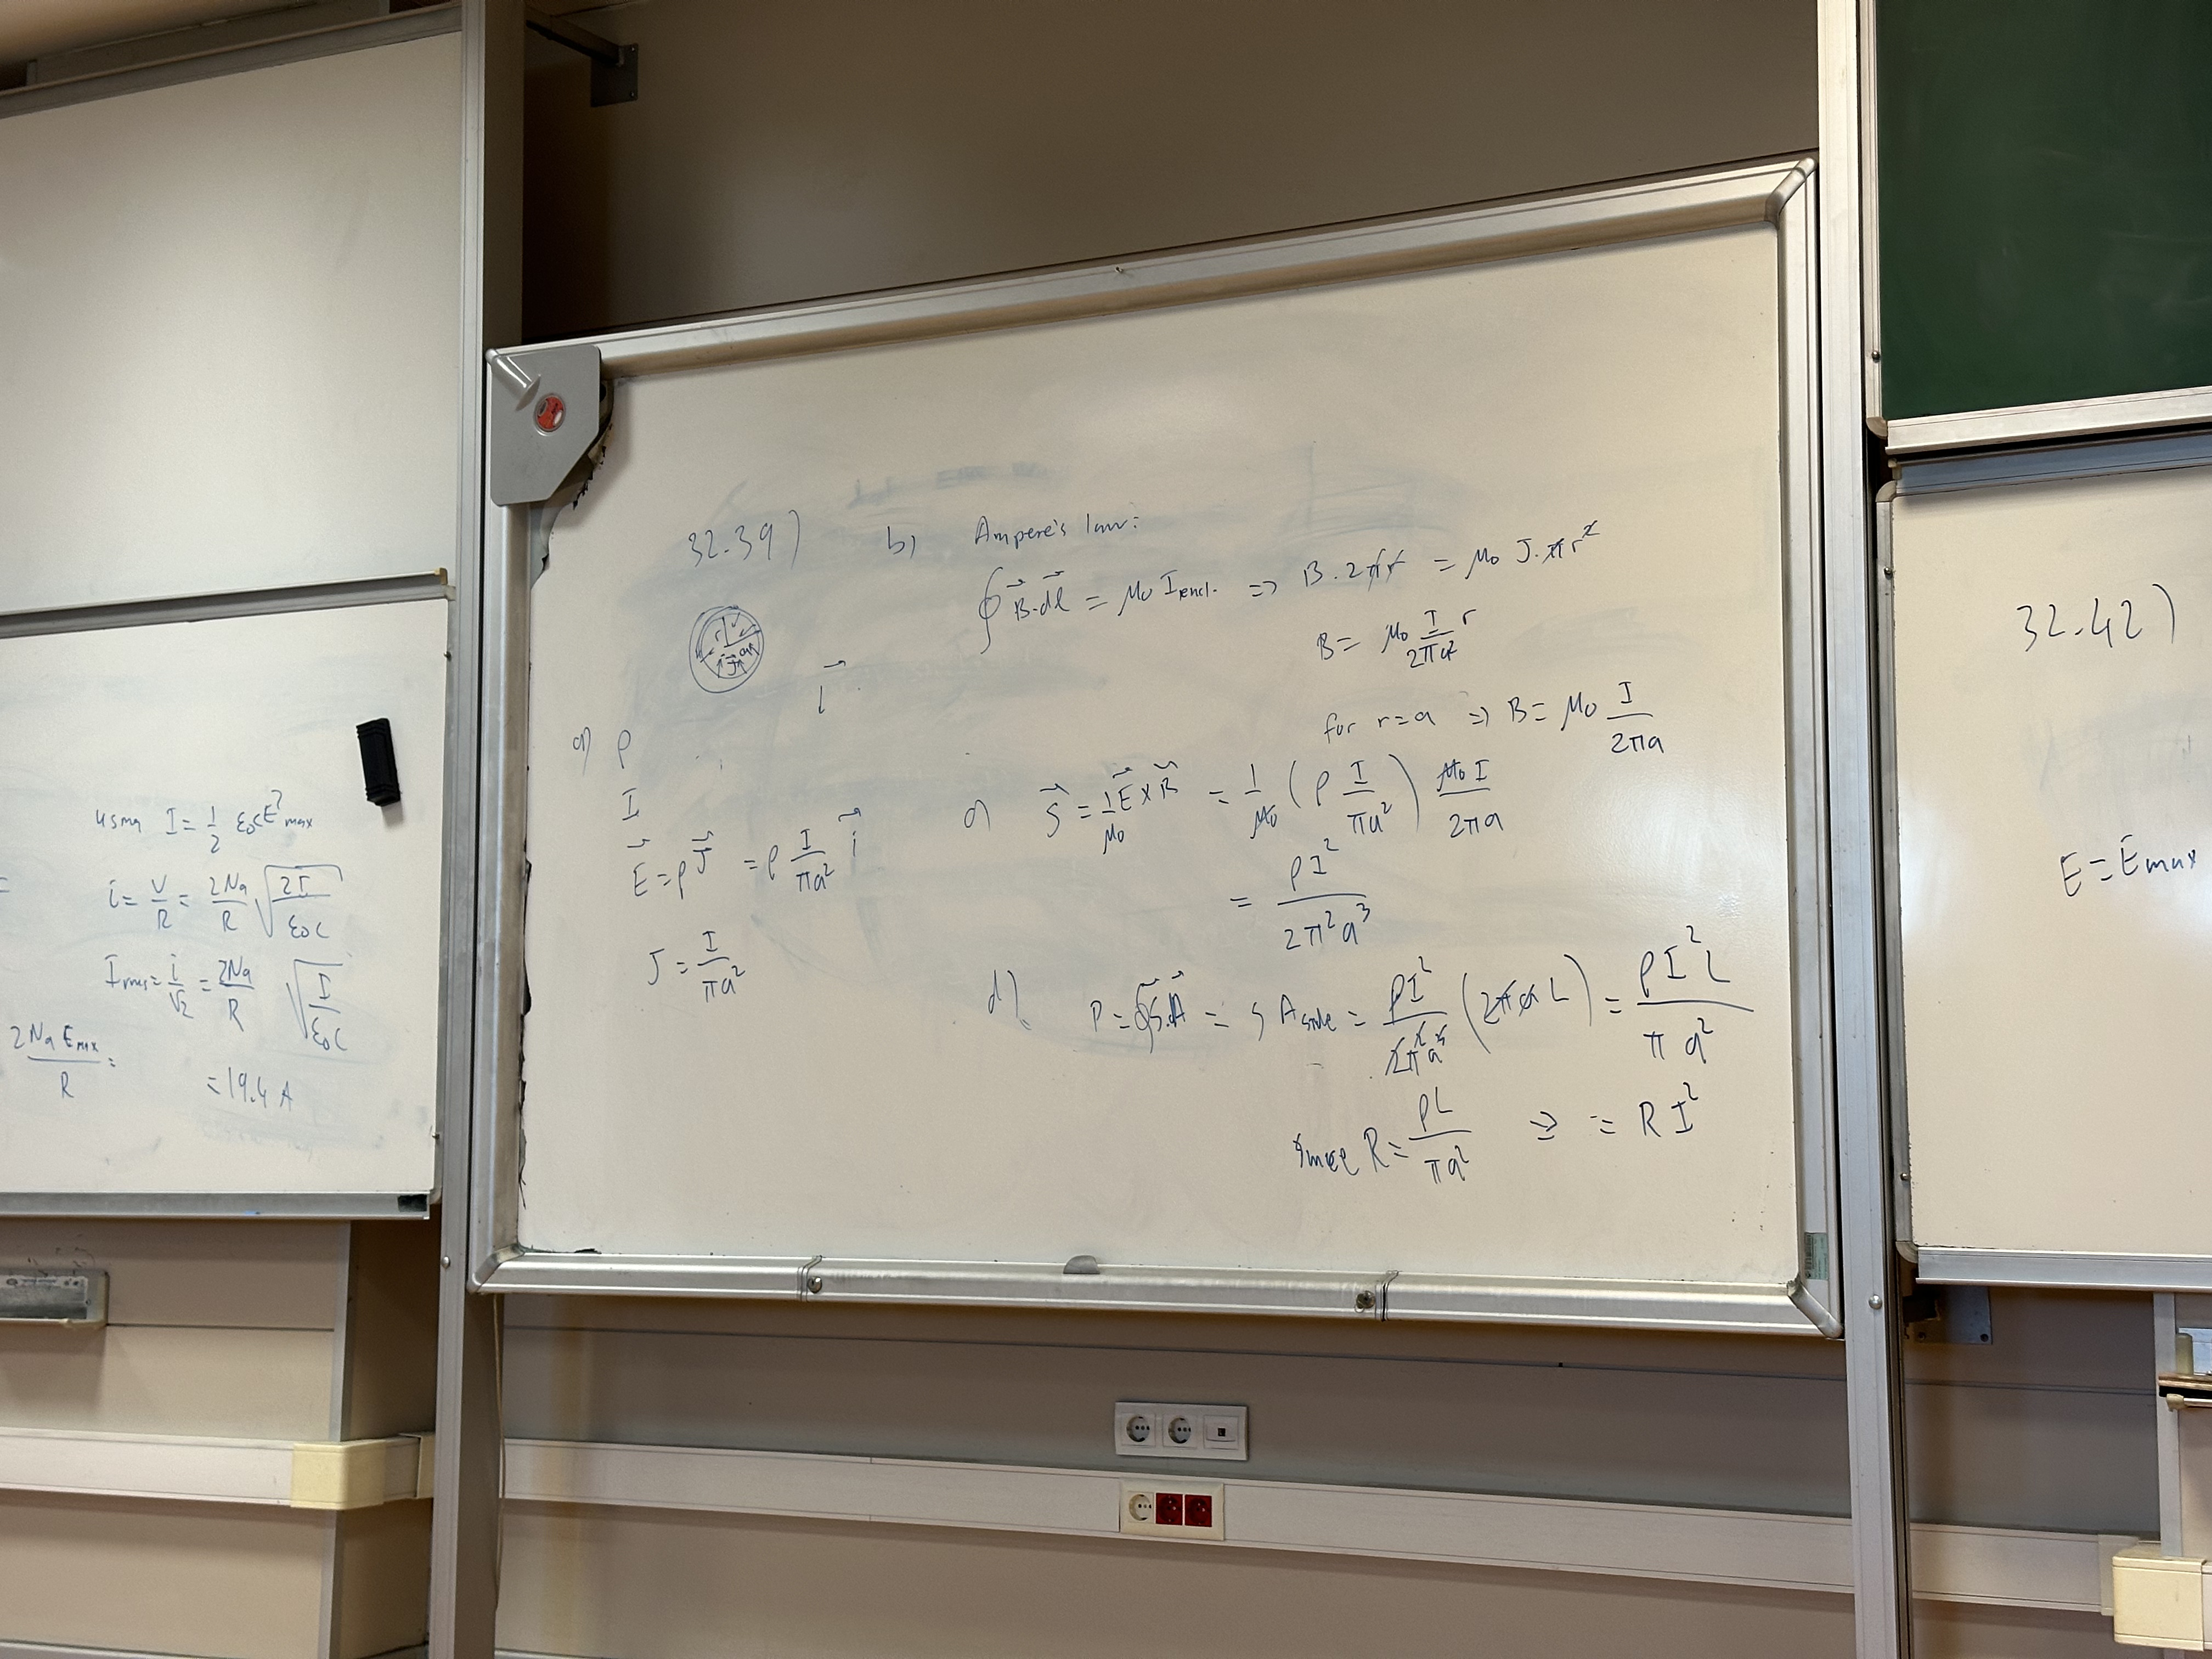 using I = 1/2 ε₀cE²max
i = V/R = 2Na/R √(2I/ε₀c)
Irms = i/√2 = 2Na/R √(I/ε₀c)
2Na Emax/R =
= 19.4 A
32.39)
a) ρ
I
E⃗ = ρJ⃗ = ρ I/πa² i⃗
J = I/πa²
b) Ampere's law:
∮ B⃗·dl⃗ = μ₀ Iencl. => B.2πr = μ₀ J.πr²
B = μ₀ I/2πa² r
for r=a => B = μ₀ I/2πa
S⃗ = 1/μ₀ E⃗ × B⃗ = 1/μ₀ (ρ I/πa²) μ₀I/2πa
= ρI²/2π²a³
d) P = ∮S⃗.dA⃗ = S Aside = ρI²/2π²a³ (2πa L) = ρI²L/πa²
since R = ρL/πa² => = RI²
32.42)
E = Emax